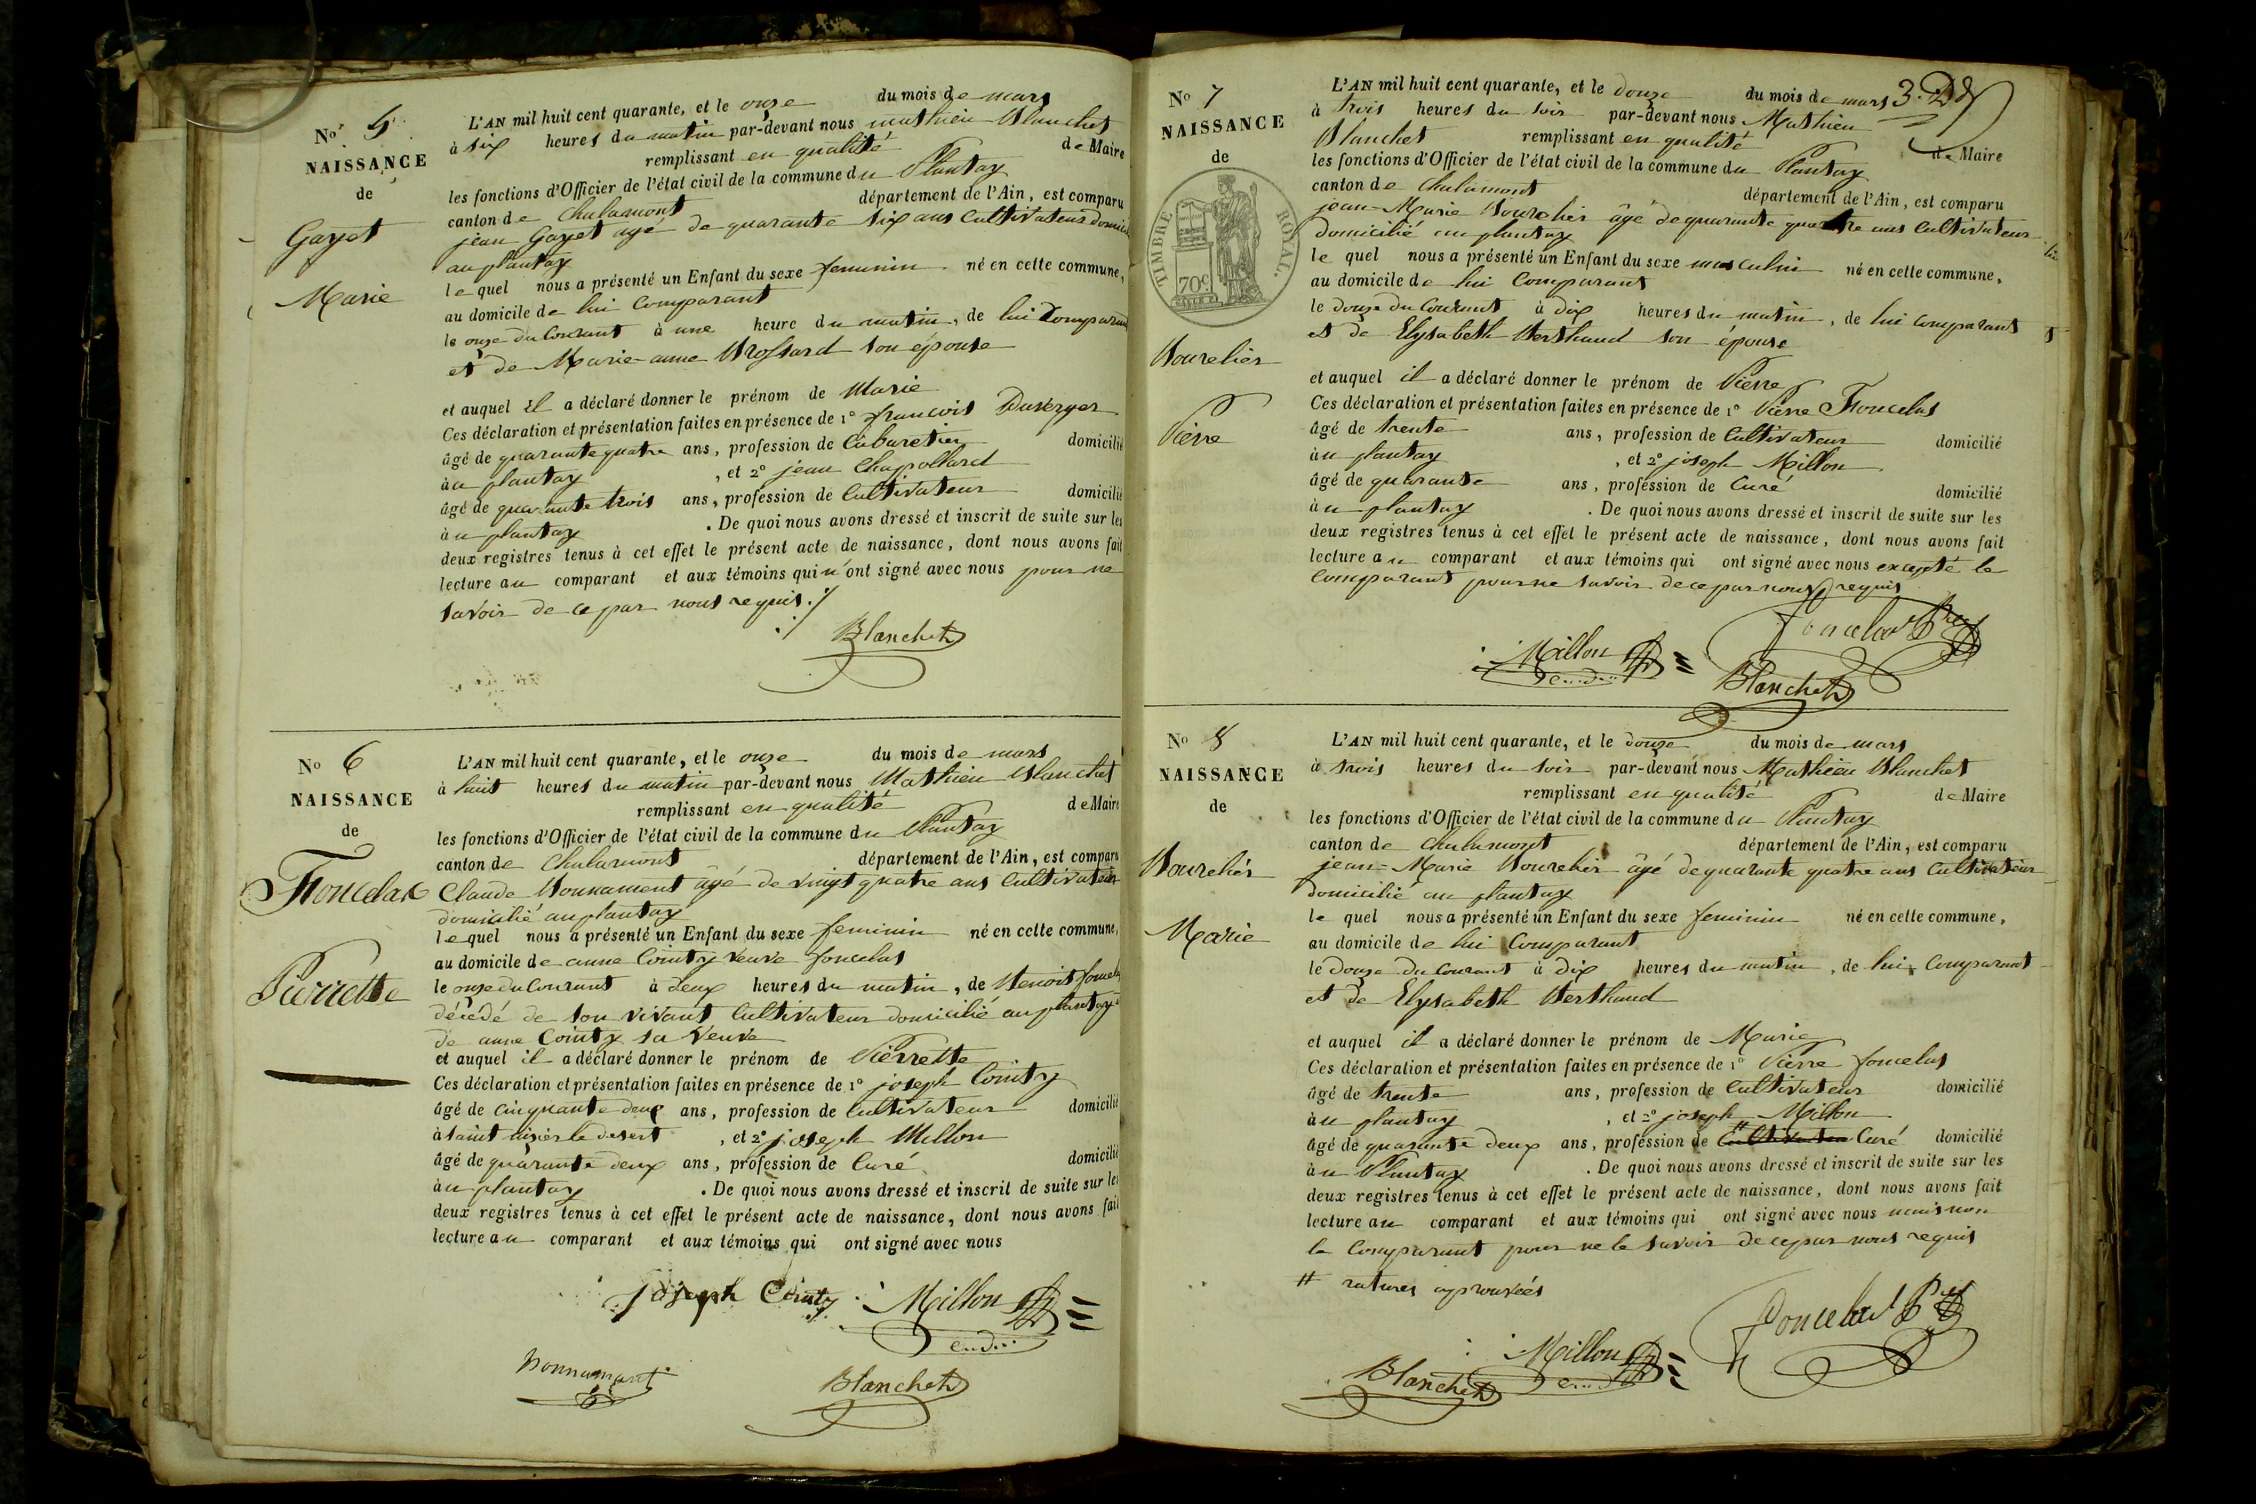 No 5
NAISSANCE
de
Gayet
Marie
L'AN mil huit cent quarante, et le onze du mois de mars
à six heures du matin par-devant nous mathieu Blanchet
remplissant en qualité de Maire
les fonctions d'Officier de l'état civil de la commune du Plantay
canton de Chalamont département de l'Ain, est comparu
jean Gayet agé de quarante six ans Cultivateur domicilié
au plantay
le quel nous a présenté un Enfant du sexe feminin né en cette commune,
au domicile de lui Comparant
le onze du Courant à une heure du matin, de lui Comparant
et de Marie-anne Brossard son épouse
et auquel il a déclaré donner le prénom de Marie
Ces déclaration et présentation faites en présence de 1° francois Duverger
âgé de quarante quatre ans, profession de Cabaretier domicilié
à u plantay, et 2° jean Chapolland
âgé de quarante trois ans, profession de Cultivateur domicilié
à u plantay. De quoi nous avons dressé et inscrit de suite sur les
deux registres tenus à cet effet le présent acte de naissance, dont nous avons fait
lecture au comparant et aux témoins qui n'ont signé avec nous pour ne
savoir de ce par nous requis ./.
Blanchet
No 6
NAISSANCE
de
Foncelas
Pierrette
L'AN mil huit cent quarante, et le onze du mois de mars
à huit heures du matin par-devant nous Mathieu Blanchet
remplissant en qualité de Maire
les fonctions d'Officier de l'état civil de la commune du Plantay
canton de Chalamont département de l'Ain, est comparu
Claude Bonnament agé de vingt quatre ans Cultivateur
domicilié au plantay
le quel nous a présenté un Enfant du sexe feminin né en cette commune,
au domicile de anne Cointy veuve foncelas
le onze du Courant à deux heures du matin, de Benoit foncelas
décédé de son vivant Cultivateur domicilié au plantay
de anne Cointy sa Veuve
et auquel il a déclaré donner le prénom de Pierrette
Ces déclaration et présentation faites en présence de 1° joseph Cointy
âgé de cinquante deux ans, profession de Cultivateur domicilié
à saint nisier le desert, et 2° joseph Millon
âgé de quarante deux ans, profession de Curé domicilié
à u plantay. De quoi nous avons dressé et inscrit de suite sur les
deux registres tenus à cet effet le présent acte de naissance, dont nous avons fait
lecture au comparant et aux témoins qui ont signé avec nous
joseph Cointy Millon
Bonnamant Blanchet
3.
No 7
NAISSANCE
de
TIMBRE ROYAL.
70c
Bourelier
Pierre
L'AN mil huit cent quarante, et le douze du mois de mars
à trois heures du soir par-devant nous Mathieu
Blanchet remplissant en qualité de Maire
les fonctions d'Officier de l'état civil de la commune du Plantay
canton de Chalamont département de l'Ain, est comparu
jean-Marie Bourelier âgé de quarante quatre ans Cultivateur
domicilié au plantay
le quel nous a présenté un Enfant du sexe masculin né en cette commune,
au domicile de lui Comparant
le douze du Courant à dix heures du matin, de lui comparant
et de Elysabeth Berthaud son épouse
et auquel il a déclaré donner le prénom de Pierre
Ces déclaration et présentation faites en présence de 1° Pierre Foncelas
âgé de trente ans, profession de Cultivateur domicilié
à u plantay, et 2° joseph Millon
âgé de quarante ans, profession de Curé domicilié
à u plantay. De quoi nous avons dressé et inscrit de suite sur les
deux registres tenus à cet effet le présent acte de naissance, dont nous avons fait
lecture au comparant et aux témoins qui ont signé avec nous excepté le
Comparant pour ne savoir de ce par nous requis
Millon Blanchet
No 8
NAISSANCE
de
Bourelier
Marie
L'AN mil huit cent quarante, et le douze du mois de mars
à trois heures du soir par-devant nous Mathieu Blanchet
remplissant en qualité de Maire
les fonctions d'Officier de l'état civil de la commune du Plantay
canton de Chalamont département de l'Ain, est comparu
jean-Marie Bourelier âgé de quarante quatre ans Cultivateur
domicilié au plantay
le quel nous a présenté un Enfant du sexe feminin né en cette commune,
au domicile de lui Comparant
le douze du Courant à dix heures du matin, de lui Comparant
et de Elysabeth Berthaud
et auquel il a déclaré donner le prénom de Marie
Ces déclaration et présentation faites en présence de 1° Pierre foncelas
âgé de trente ans, profession de Cultivateur domicilié
à u plantay, et 2° joseph Millon
âgé de quarante deux ans, profession de Cultivateur Curé domicilié
à u Plantay. De quoi nous avons dressé et inscrit de suite sur les
deux registres tenus à cet effet le présent acte de naissance, dont nous avons fait
lecture au comparant et aux témoins qui ont signé avec nous mais non
le Comparant pour ne le savoir de ce par nous requis
# ratures aprouvées
Blanchet Millon